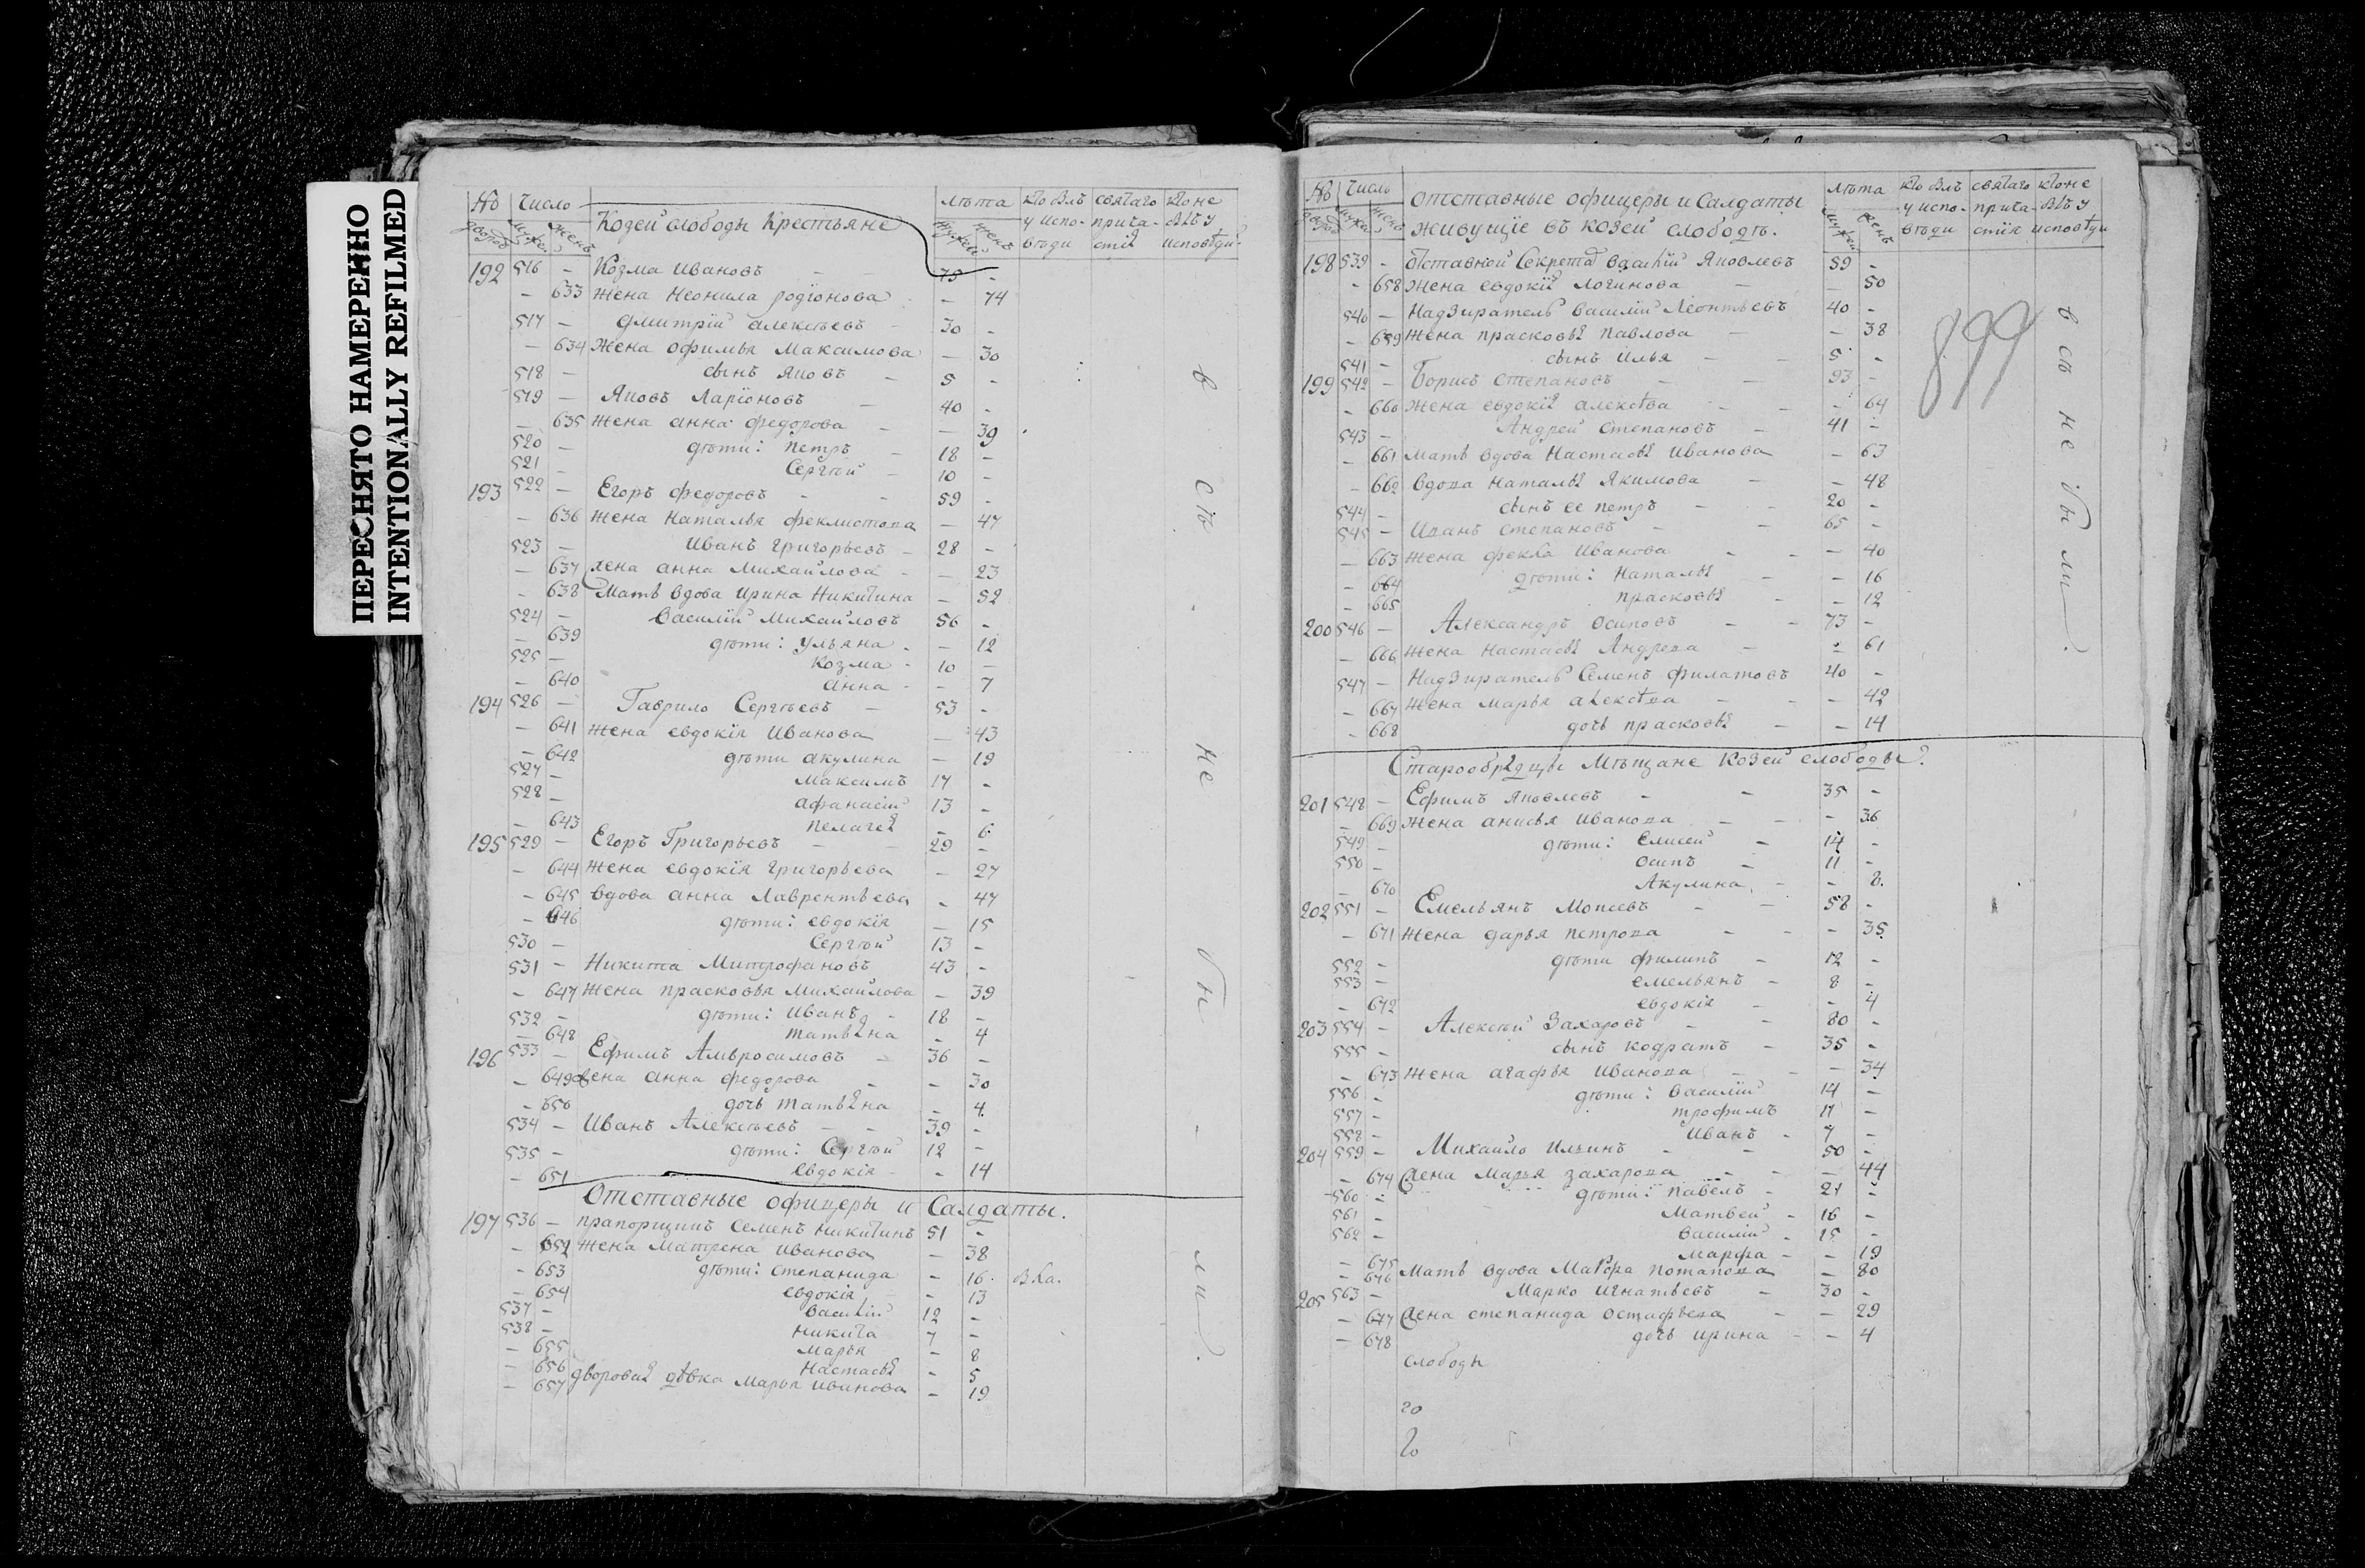 ПЕРЕСНЯТО НАМЕРЕННО
INTENTIONALLY REFILMED
№ Число лѣта кто былъ святаго кто не
дворов муже женъ Козей слободы Крестьяне мужей женъ у испо- прича- былъ у
вѣди стія исповѣди
192 516 – Козма Ивановъ – 75 –
– 633 жена Неонила родїонова – 74
517 – дмитрїй алексѣевъ – 30 –
– 634 жена офимья Максимова – 30
518 – сынъ яковъ – 5 –
519 – Яковъ Ларїоновъ – 40 –
– 635 жена анна федорова – – 39
520 – дѣти: петръ – 18 –
521 – Сергѣй – 10 –
193 522 – Егоръ федоровъ – – 59 –
– 636 жена Наталья феклистова – 47
523 – Иванъ григорьевъ – 28 –
– 637 жена анна Михайлова – – 23
– 638 Мать вдова Ирина Никитина – 52
524 – Василїй Михайловъ 56 –
– 639 дѣти: ульяна – – 12
525 – козма – 10 –
– 640 анна – – 7
194 526 – Гаврило Сергѣевъ – 53 –
– 641 жена евдокїя Иванова – 43
– 642 дѣти акулина – 19
527 – максимъ 17 –
528 – афанасїй 13 –
– 643 пелагея – 6
195 529 – Егоръ Григорьевъ – – 29 –
– 644 жена евдокїя григорьева – 27
– 645 вдова анна Лаврентьева – 47
– 646 дѣти: евдокїя – 15
530 – Сергѣй 13 –
531 – Никита Митрофановъ 43 –
– 647 жена прасковья Михайлова – 39
532 – дѣти: Иванъ – 18 –
– 648 татьяна – 4
196 533 – Ефимъ Амвросимовъ – 36 –
– 649 жена анна федорова – – 30
– 650 дочь татьяна – 4
534 – Иванъ Алексѣевъ – – 39 –
535 – дѣти: Сергѣй 12 –
– 651 евдокїя – – 14
Отставные офицеры и Салдаты.
197 536 – прапорщикъ Семенъ Никитинъ 51 –
– 652 жена Матрена Иванова – 38
– 653 дѣти: степанида – 16
– 654 евдокїя – – 13
537 – василїй 12 –
538 – никита 7 –
– 655 марья – 8
– 656 настасья – 5
– 657 дворовая дѣвка Марья Иванова – 19
всѣ не были.
№ Числъ отставные офицеры и Салдаты лѣта кто былъ святаго кто не
живущїе въ козей слободѣ. мужей женъ у испо- прича- былъ у
вѣди стїя исповѣди
198 539 – Отставной Секретарь василїй Яковлевъ 59 –
– 658 жена евдокїя логинова – – 50
540 – Надзиратель василїй Леонтьевъ 40 –
– 659 жена прасковья павлова – – 38
541 – сынъ илья – – 5 –
199 542 – Борисъ степановъ – – 93 –
– 660 жена евдокїя алексѣва – – – 64
543 – Андрей степановъ – 41 –
– 661 мать вдова Настасья Иванова – 63
– 662 вдова наталья якимова – – 48
544 – сынъ ее петръ – – 20 –
545 – Иванъ степановъ – – 65 –
– 663 жена фекла Иванова – – – 40
– 664 дѣти: Наталья – – 16
– 665 прасковья – – 12
200 546 – Александръ осиповъ – – 73 –
– 666 жена настасья Андрева – – 61
547 – Надзиратель Семенъ филатовъ 40 –
– 667 жена марья алексѣва – – – 42
– 668 дочь прасковья – – 14
899
всѣ не были.
Старообрядцы мѣщане козей слободы.
201 548 – Ефимъ яковлевъ – – 35 –
– 669 жена анисья иванова – – – 36
549 – дѣти: Елисей – 14 –
550 – осипъ – 11 –
– 670 Акулина – – 8
202 551 – Емельянъ Мопсевъ – – 58 –
– 671 жена дарья петрова – – – 35
552 – дѣти филипъ – 12 –
553 – емельянъ – 8 –
– 672 евдокїя – – 4
203 554 – Алексѣй Захаровъ – – 80 –
555 – сынъ кодратъ – 35 –
– 673 жена агафья иванова – – – 34
556 – дѣти: василїй 14 –
557 – трофимъ 11 –
558 – иванъ – 7 –
204 559 – Михайло Ильинъ – – 50 –
– 674 жена марья захарова – – – 44
560 – дѣти: павелъ – 21 –
561 – матвей – 16 –
562 – василїй – 15 –
– 675 марфа – – 19
– 676 мать вдова Марфа потапова – 80
205 563 – Марко игнатьевъ – 30 –
– 677 жена степанида остафьева – – 29
– 678 дочь ирина – – 4
слободы
го